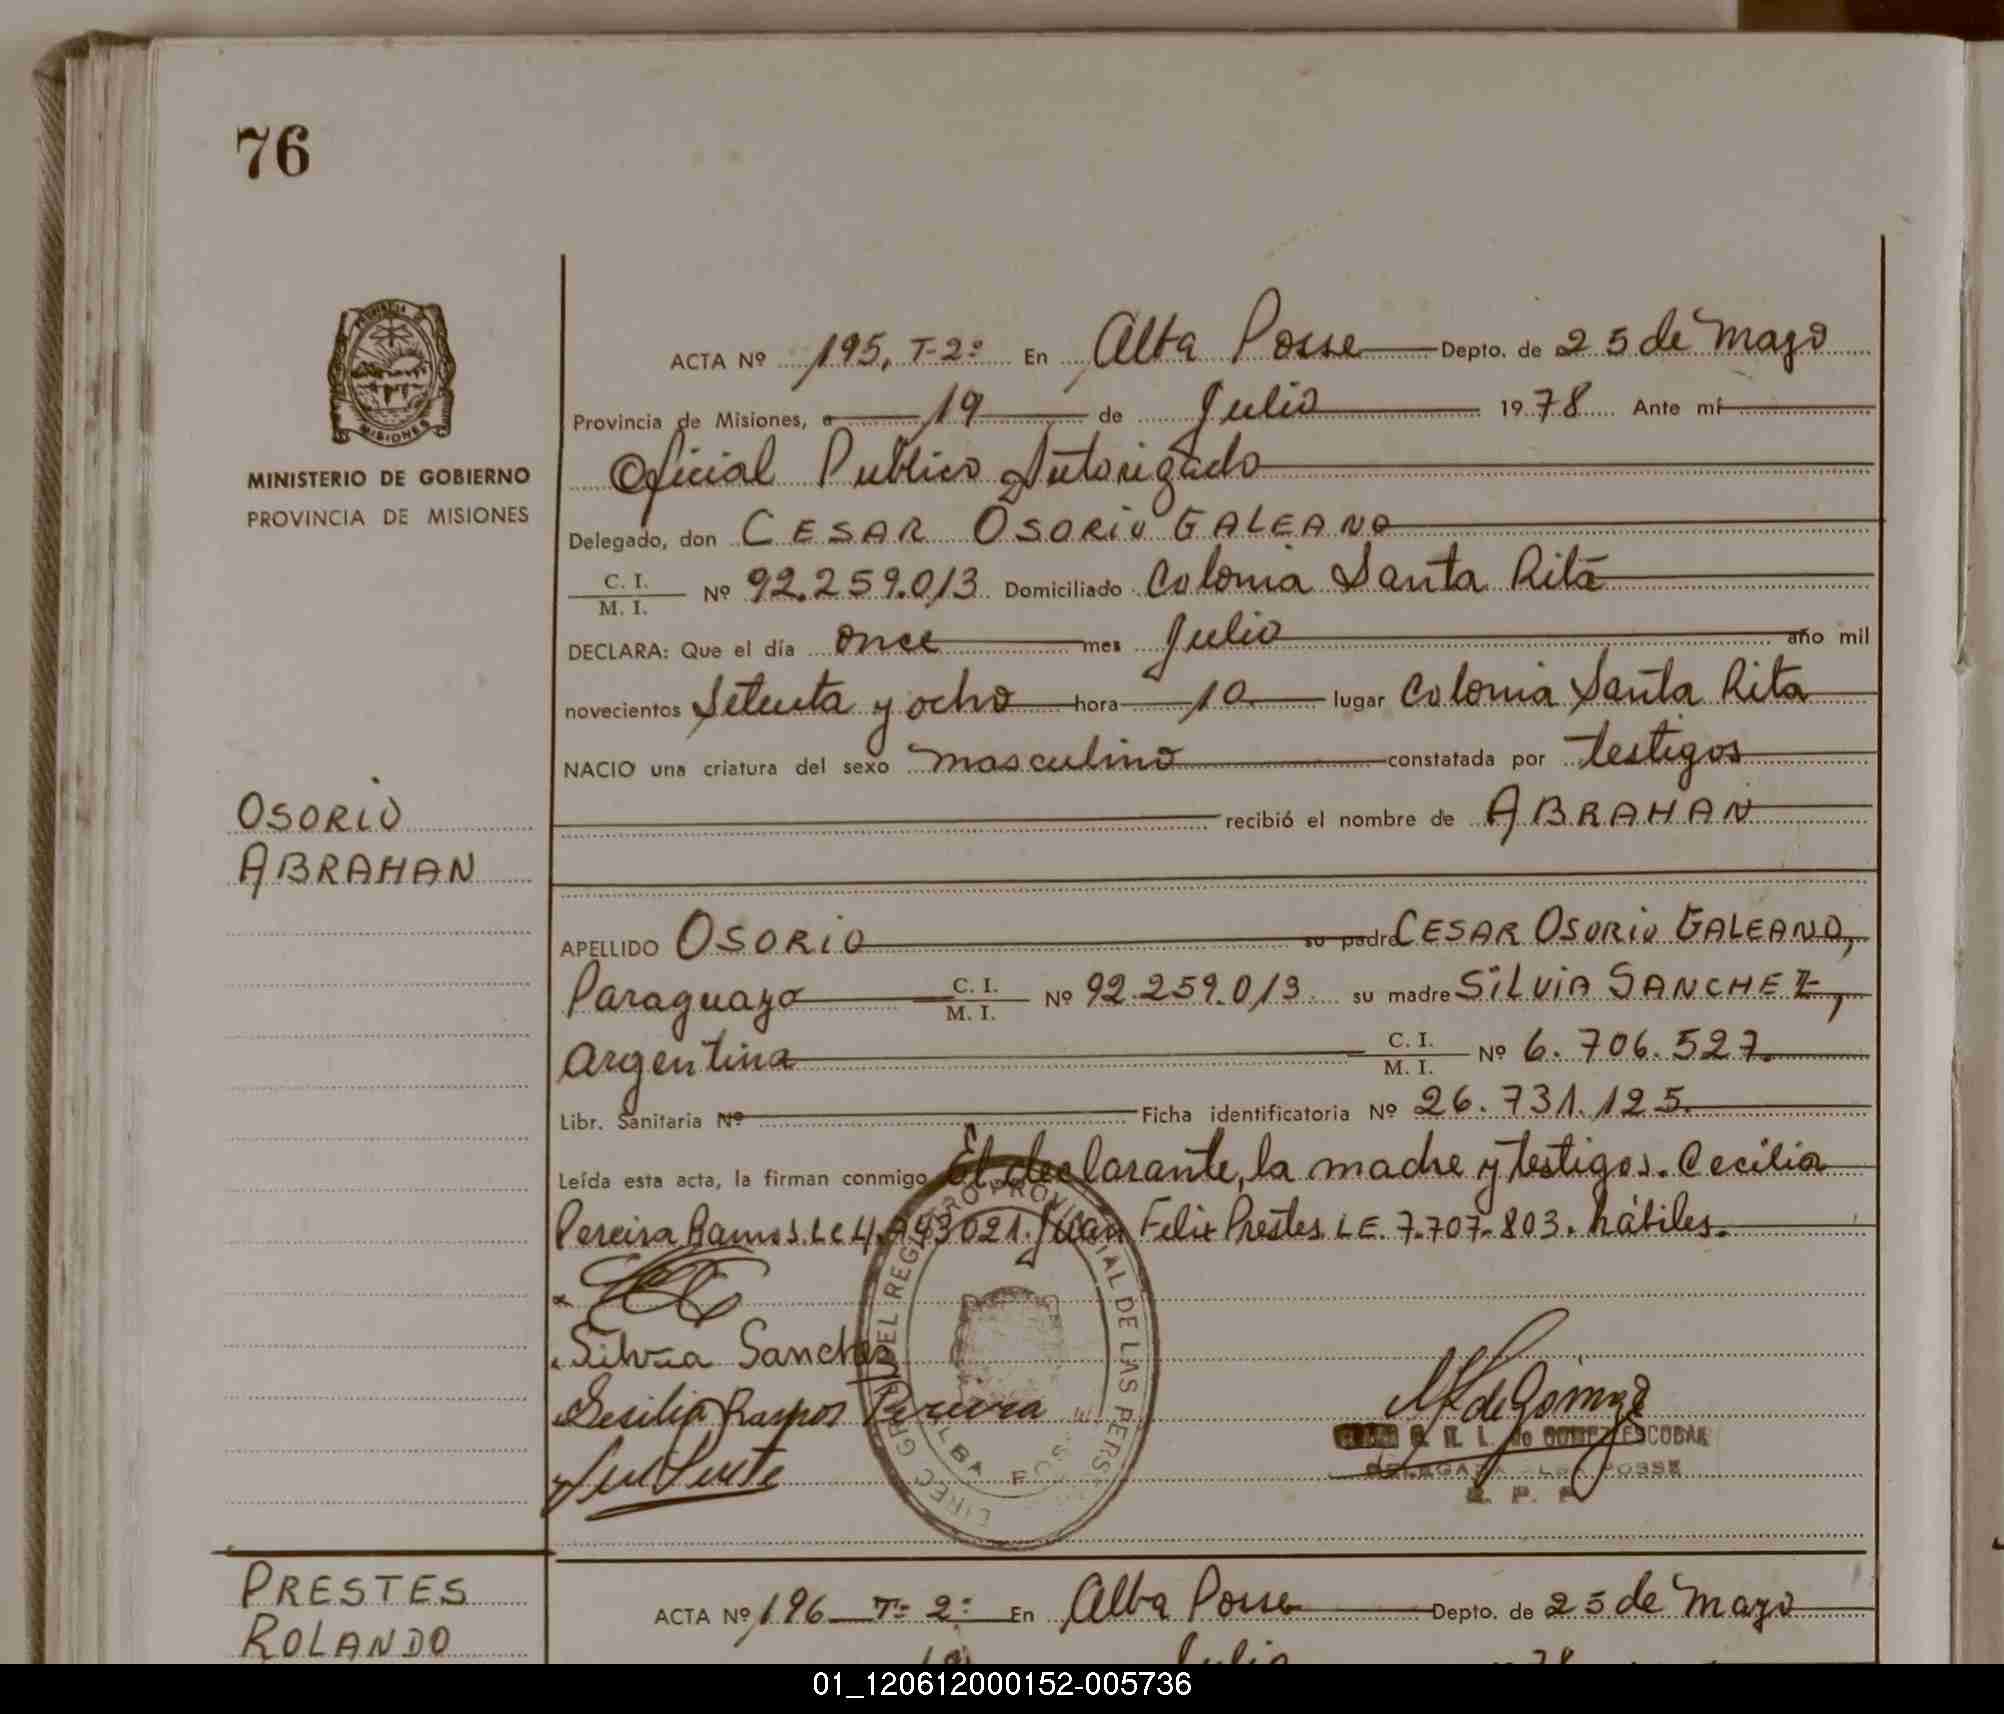 76
PROVINCIA DE
MISIONES
MINISTERIO DE GOBIERNO
PROVINCIA DE MISIONES
ACTA Nº 195, T-2º En Alba Posse Depto. de 25 de Mayo
Provincia de Misiones, a 19 de Julio 1978 Ante mí
Oficial Publico Autorizado
Delegado, don CESAR OSORIO GALEANO
C. I.
M. I. Nº 92.259.013 Domiciliado Colonia Santa Rita
DECLARA: Que el día once mes Julio año mil
novecientos Setenta y ocho hora 10 lugar Colonia Santa Rita
NACIO una criatura del sexo masculino constatada por testigos
recibió el nombre de ABRAHAN
OSORIO
ABRAHAN
APELLIDO OSORIO su padre CESAR OSORIO GALEANO,
Paraguayo C. I.
M. I. Nº 92.259.013 su madre SILVIA SANCHEZ,
Argentina C. I.
M. I. Nº 6.706.527.
Libr. Sanitaria Nº Ficha identificatoria Nº 26.731.125.
Leída esta acta, la firman conmigo El declarante, la madre y testigos. Cecilia
Pereira Ramos LC 4. 43021. Juan Felix Prestes LE. 7.707.803. hábiles.
Silvia Sanchez
Sesilia Ramos Pereira
DIREC GRAL DEL REGISTRO PROVINCIAL DE LAS PERS
ALBA POSSE
M de Gómez
de GOMEZ ESCOBAR
DELEGADA ALBA POSSE
R. P. P
PRESTES
ROLANDO
ACTA Nº 196 T- 2º En Alba Posse Depto. de 25 de Mayo
19 Julio 1978
01_120612000152-005736